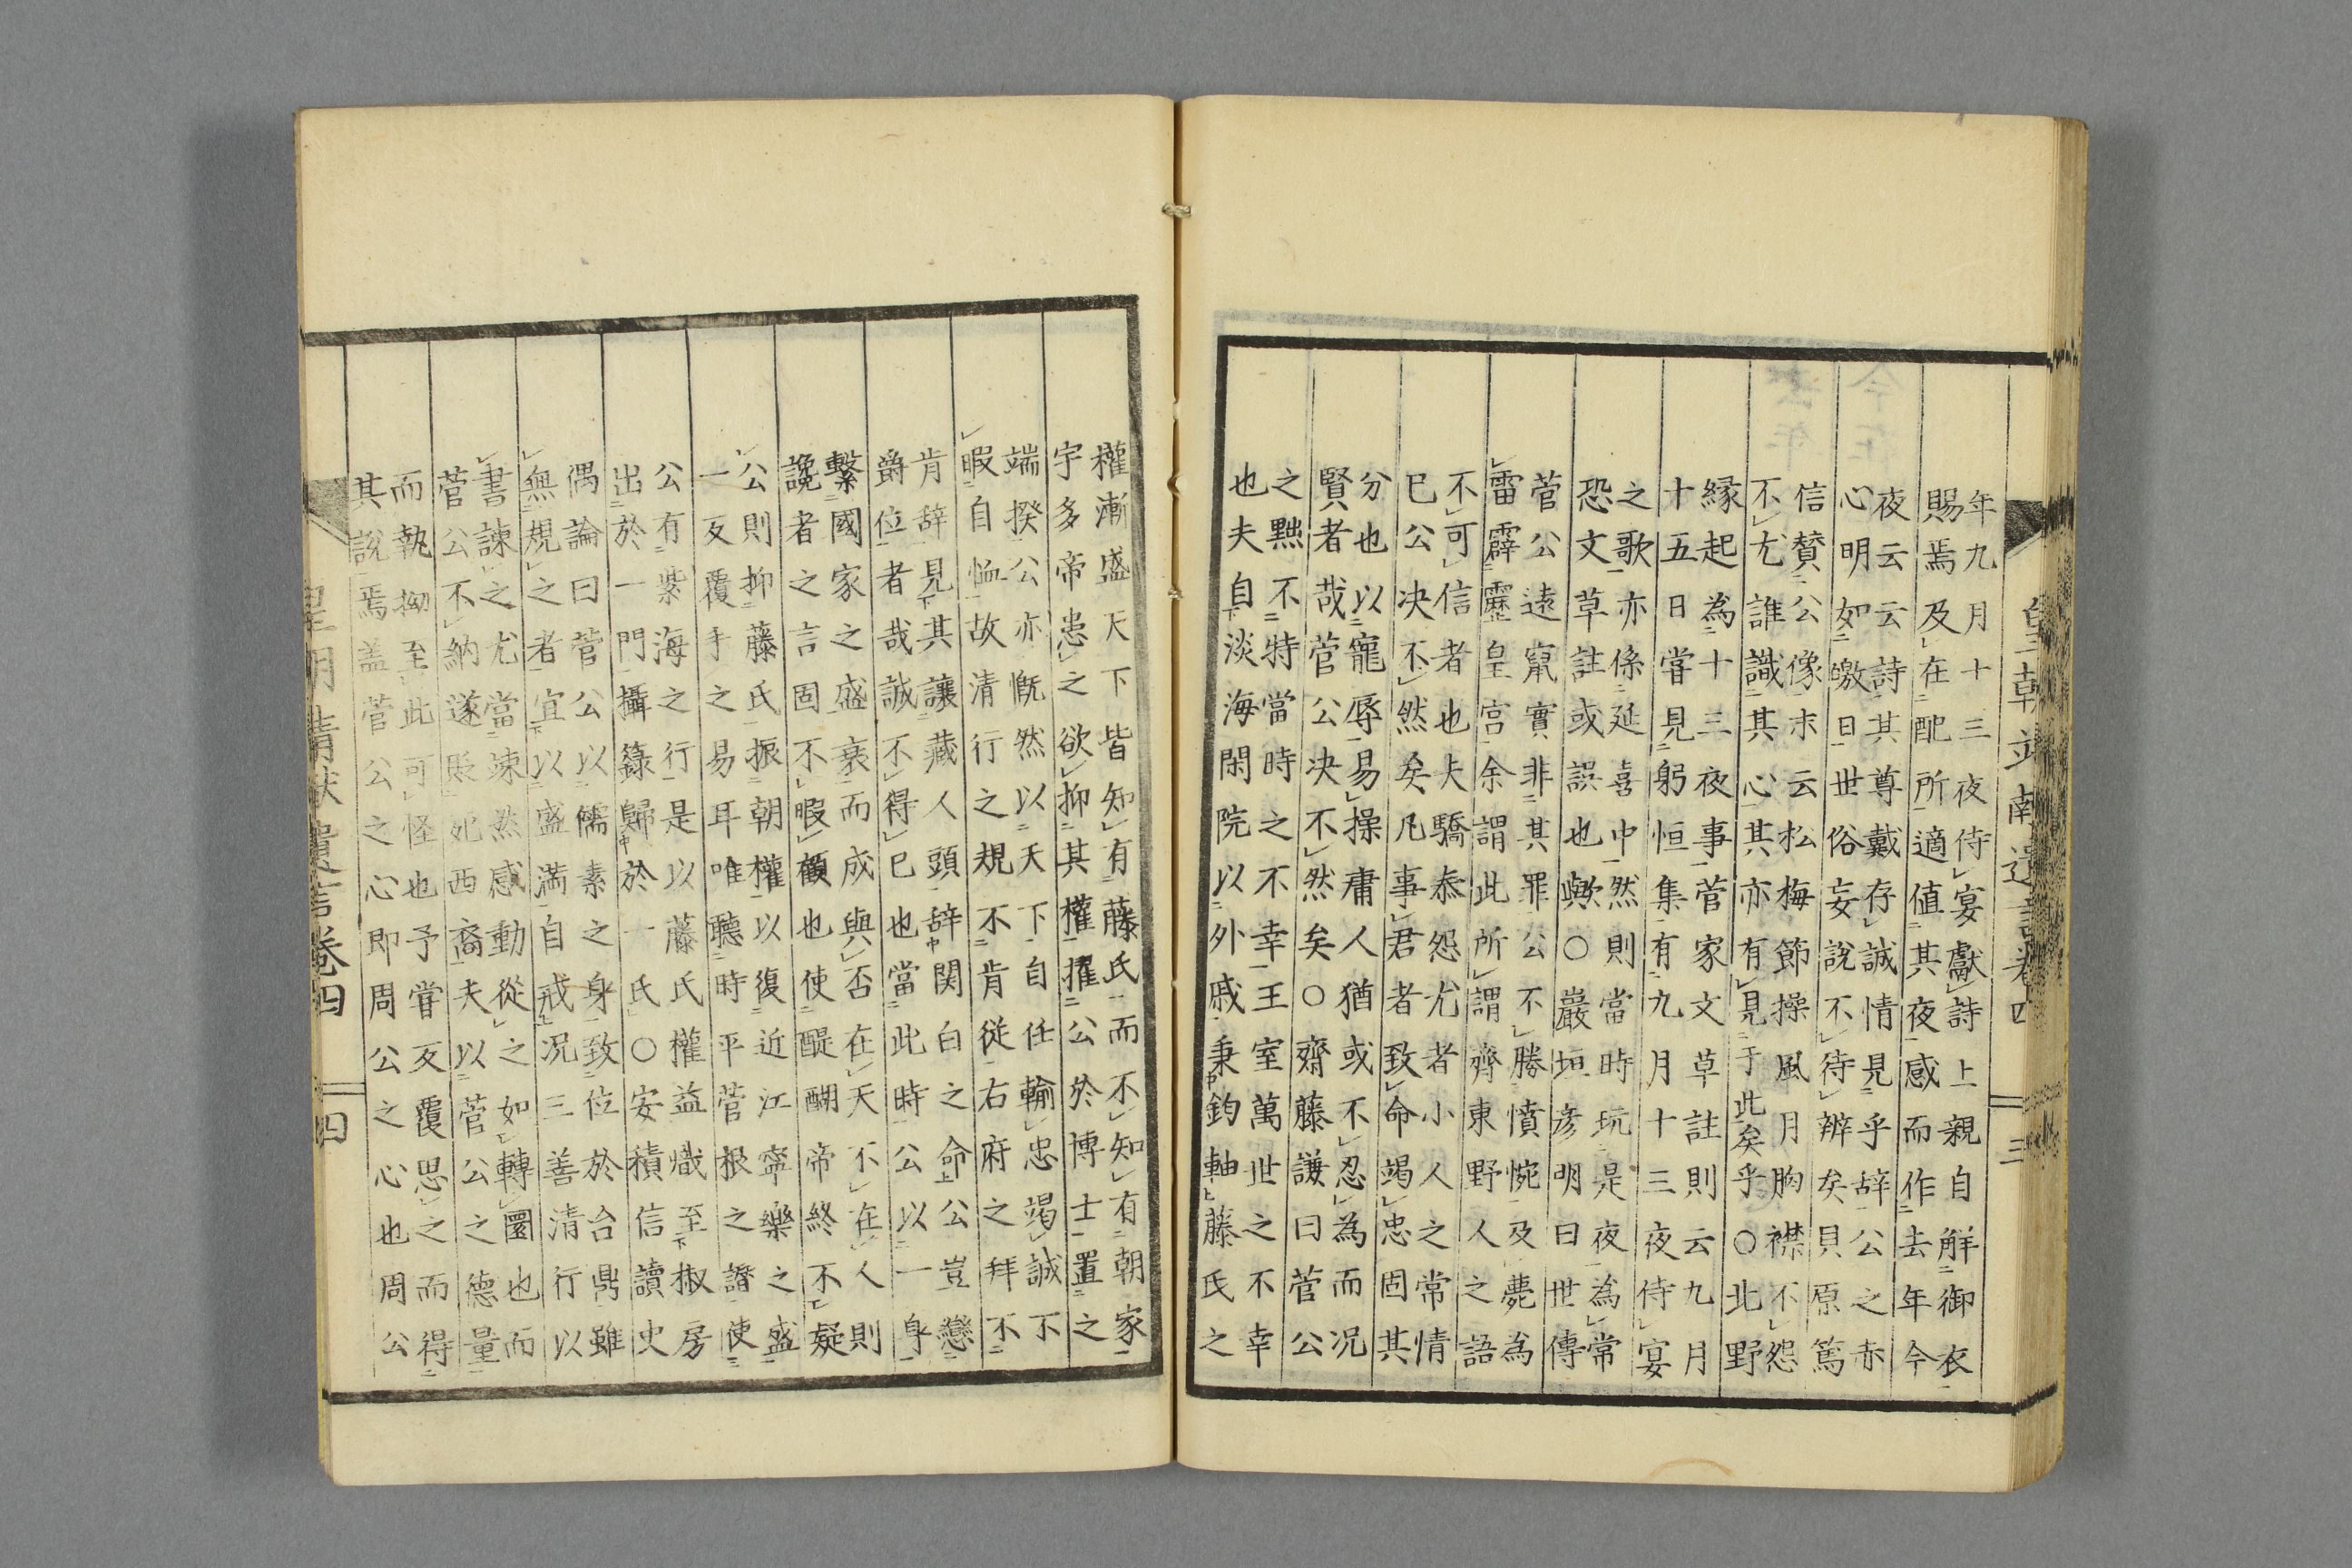 年九月十三夜侍宴獻詩上親自解御衣
賜焉及在配所適値其夜感而作去年今
夜云云詩其尊戴存誠情見乎辞公之赤
心明如皦日世俗妄說不待辨矣貝原篤
信賛公像末云松梅節操風月胸襟不怨
不尤誰識其心其亦有見于此矣乎○北野
縁起為十三夜事菅家文草註則云九月
十五日甞見躬恒集有九月十三夜侍宴
之歌亦係延喜中然則當時玩是夜為常
恐文草註或誤也歟○巖垣彦明曰世傳
菅公遠竄實非其罪公不勝憤惋及薨為
雷霹靂皇宮余謂此所謂齊東野人之語
不可信者也夫驕忝怨尤者小人之常情
已公决不然矣凡事君者致命竭忠固其
分也以寵辱易操庸人猶或不忍為而况
賢者哉菅公决不然矣○齊藤謙曰菅公
之黜不特當時之不幸王室萬世之不幸
也夫自淡海閑院以外戚秉鈞軸藤氏之
權漸盛天下皆知有藤氏而不知有朝家
宇多帝患之欲抑其權擢公於博士置之
端揆公亦慨然以天下自任輸忠竭誠不
暇自恤故清行之規不肯従右府之拜不
肯辞見其讓藏人頭辞関白之命公豈戀
爵位者哉誠不得已也當此時公以一身
繫國家之盛衰而成與否在天不在人則
讒者之言固不暇顧也使醍醐帝終不疑
公則抑藤氏振朝權以復近江寧樂之盛
一反覆手之易耳唯聽時平菅根之譖使
公有紫海之行是以藤氏權益熾至椒房
出於一門攝籙歸於一氏○安積信讀史
偶論曰菅公以儒素之身致位於台鼎雖
無規之者宜以盛満自戒况三善清行以
書諫之尤當竦然感動從之如轉圜也而
菅公不納遂貶死西裔夫以菅公之德量
而執拗至此可怪也予甞反覆思之而得
其說焉盖菅公之心即周公之心也周公
四